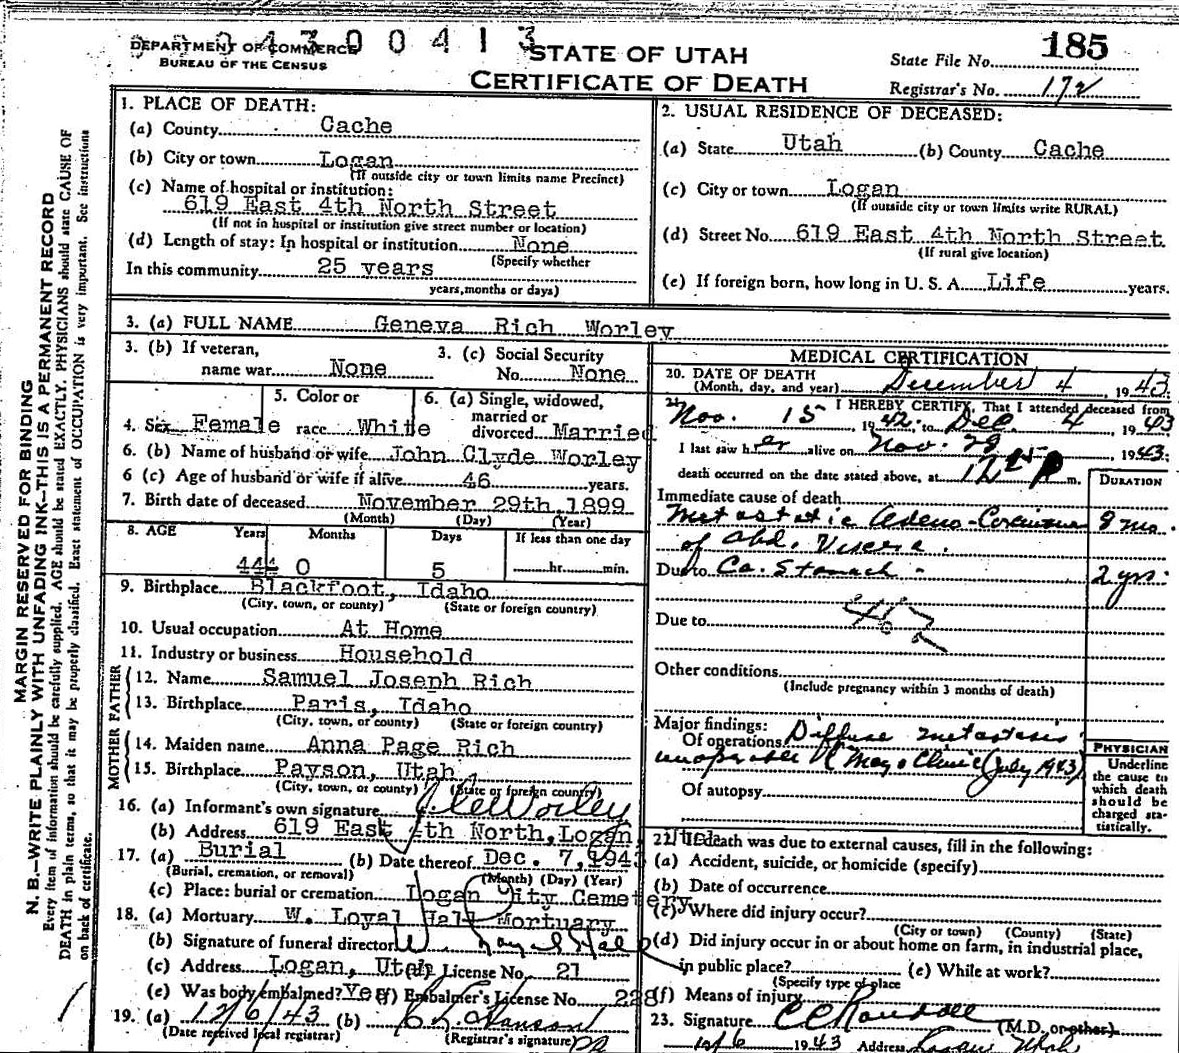 0 0 0 4 3 0 0 4 1 3
DEPARTMENT OF COMMERCE
BUREAU OF THE CENSUS
STATE OF UTAH
CERTIFICATE OF DEATH
State File No. 185
Registrar's No. 172
MARGIN RESERVED FOR BINDING
N. B.—WRITE PLAINLY WITH UNFADING INK—THIS IS A PERMANENT RECORD
Every item of information should be carefully supplied. AGE should be stated EXACTLY. PHYSICIANS should state CAUSE OF
DEATH in plain terms, so that it may be properly classified. Exact statement of OCCUPATION is very important. See instructions
on back of certificate.
1. PLACE OF DEATH:
(a) County Cache
(b) City or town Logan
(If outside city or town limits name Precinct)
(c) Name of hospital or institution:
619 East 4th North Street
(If not in hospital or institution give street number or location)
(d) Length of stay: In hospital or institution None
(Specify whether
In this community 25 years
years, months or days)
2. USUAL RESIDENCE OF DECEASED:
(a) State Utah (b) County Cache
(c) City or town Logan
(If outside city or town limits write RURAL)
(d) Street No. 619 East 4th North Street
(If rural give location)
(e) If foreign born, how long in U. S. A. Life years.
3. (a) FULL NAME Geneva Rich Worley
3. (b) If veteran,
name war None
3. (c) Social Security
No. None
4. Sex Female
5. Color or
race White
6. (a) Single, widowed,
married or
divorced Married
6. (b) Name of husband or wife John Clyde Worley
6 (c) Age of husband or wife if alive 46 years.
7. Birth date of deceased November 29th, 1899
(Month) (Day) (Year)
8. AGE Years Months Days If less than one day
44 0 5 hr. min.
9. Birthplace Blackfoot, Idaho
(City, town, or county) (State or foreign country)
10. Usual occupation At Home
11. Industry or business Household
FATHER
12. Name Samuel Joseph Rich
13. Birthplace Paris, Idaho
(City, town, or county) (State or foreign country)
MOTHER
14. Maiden name Anna Page Rich
15. Birthplace Payson, Utah
(City, town, or county) (State or foreign country)
16. (a) Informant's own signature J. Clyde Worley
(b) Address 619 East 4th North, Logan, Utah
17. (a) Burial (b) Date thereof Dec. 7, 1943
(Burial, cremation, or removal) (Month) (Day) (Year)
(c) Place: burial or cremation Logan City Cemetery
18. (a) Mortuary W. Loyal Hall Mortuary
(b) Signature of funeral director W. Loyal Hall
(c) Address Logan, Utah (d) License No. 21
(e) Was body embalmed? Yes (f) Embalmer's License No. 228
19. (a) 12/6/43 (b)
(Date received local registrar) (Registrar's signature)
MEDICAL CERTIFICATION
20. DATE OF DEATH
(Month, day, and year) December 4, 1943.
21. I HEREBY CERTIFY, That I attended deceased from
Nov. 15 1942, to Dec. 4 1943
I last saw her alive on Nov. 29 1943;
death occurred on the date stated above, at 12 25 P m.
DURATION
Immediate cause of death
Metastatic Adeno-Carcinoma 8 mo.
of Abd. Viscera.
Due to Ca. Stomach - 2 yrs.
Due to
Other conditions
(Include pregnancy within 3 months of death)
Major findings:
Of operations Diffuse metastasis
unoperable Mayo Clinic (July 1943)
Of autopsy
PHYSICIAN
Underline
the cause to
which death
should be
charged sta-
tistically.
22. If death was due to external causes, fill in the following:
(a) Accident, suicide, or homicide (specify)
(b) Date of occurrence
(c) Where did injury occur?
(City or town) (County) (State)
(d) Did injury occur in or about home on farm, in industrial place,
in public place? (e) While at work?
(Specify type of place
(f) Means of injury
23. Signature C C Randall (M.D. or other)
12/6 1943 Address Logan Utah